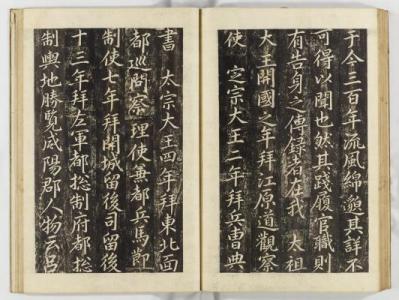 于今三百年流風綿邈其詳不
可得以聞也然其踐履官職則
有告身之傳錄者在我 太祖
大王開國之年拜江原道觀察
使 定宗大王二年拜兵曹典
書 太宗大王四年拜東北面
都巡問察理使兼都兵馬節
制使七年拜開城留後司留後
十三年拜左軍都摠制府都摠
制輿地勝覽咸陽郡人物云呂